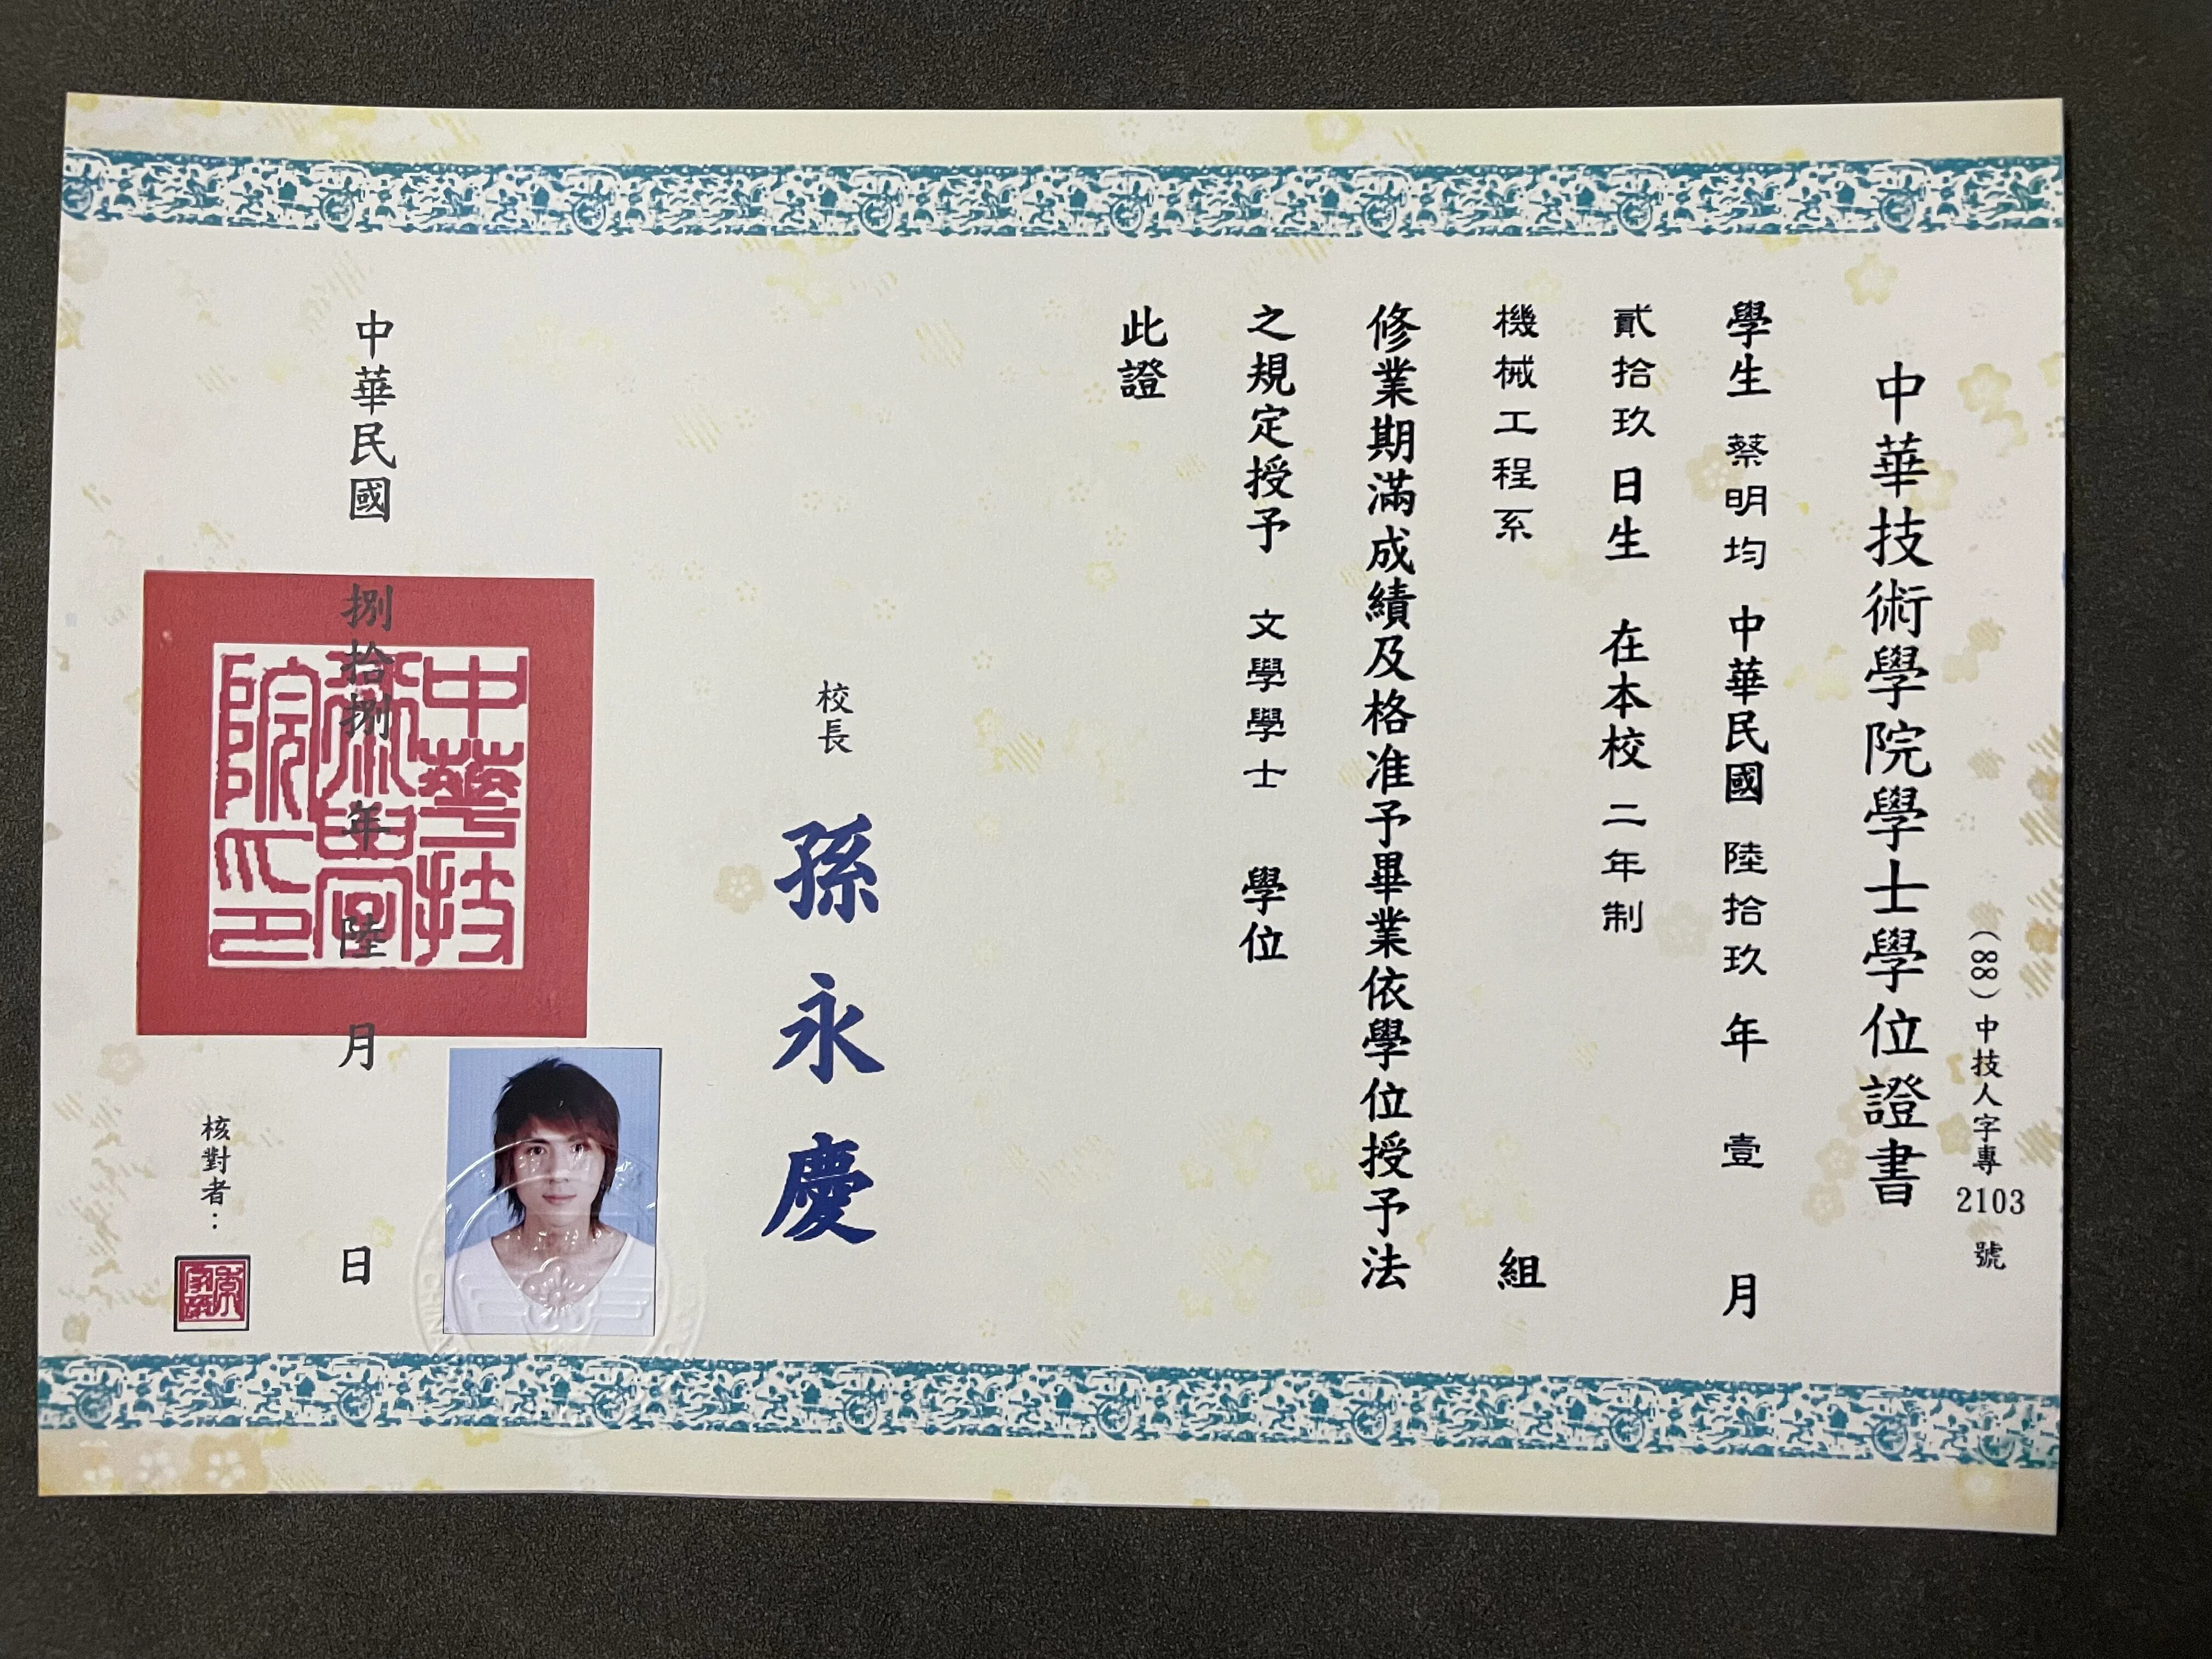 (88)中技人字專2103號
中華技術學院學士學位證書
學生 蔡明均 中華民國 陸拾玖 年 壹 月
貳拾玖 日生 在本校 二年制
機械工程系 組
修業期滿成績及格准予畢業依學位授予法
之規定授予 文學學士 學位
此證
校長 孫永慶
中華民國 捌拾捌 年 陸 月 日
中華技
術學
院印
核對者：